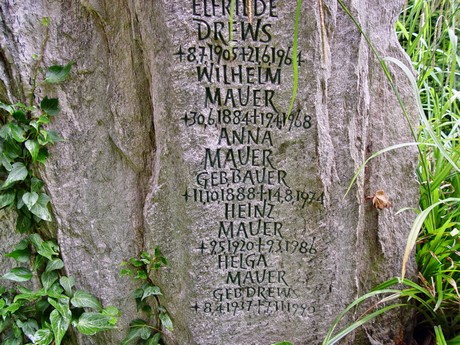 ELFRIEDE
DREWS
*8.7.1905+21.6.1964
WILHELM
MAUER
*30.6.1884+19.4.1968
ANNA
MAUER
GEB BAUER
*11.10.1888+14.8.1974
HEINZ
MAUER
*9.5.1920+9.3.1986
HELGA
MAUER
GEB DREWS
*8.4.1937+7.3.1995